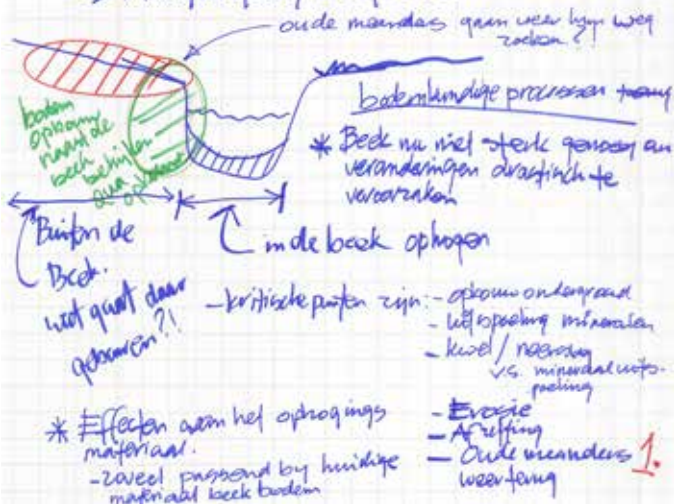 oude meanders gaan weer hun weg
zoeken?!
bodem
opbouw
naar de
beek
bekijken
qua
bodemkundige processen
* Beek nu niet sterk genoeg om
veranderingen drastisch te
veroorzaken
Buiten de
Beek.
wat gaat daar
gebeuren?!
in de beek ophogen
- kritische punten zijn:
- opbouw ondergrond
- uitspoeling mineralen
- kwel / neerslag
v.s. mineraal uits-
poeling
- Erosie
- Oude meanders
weer terug
* Effecten van het ophogings
materiaal.
- zoveel passend bij huidige
materiaal beek bodem
1.